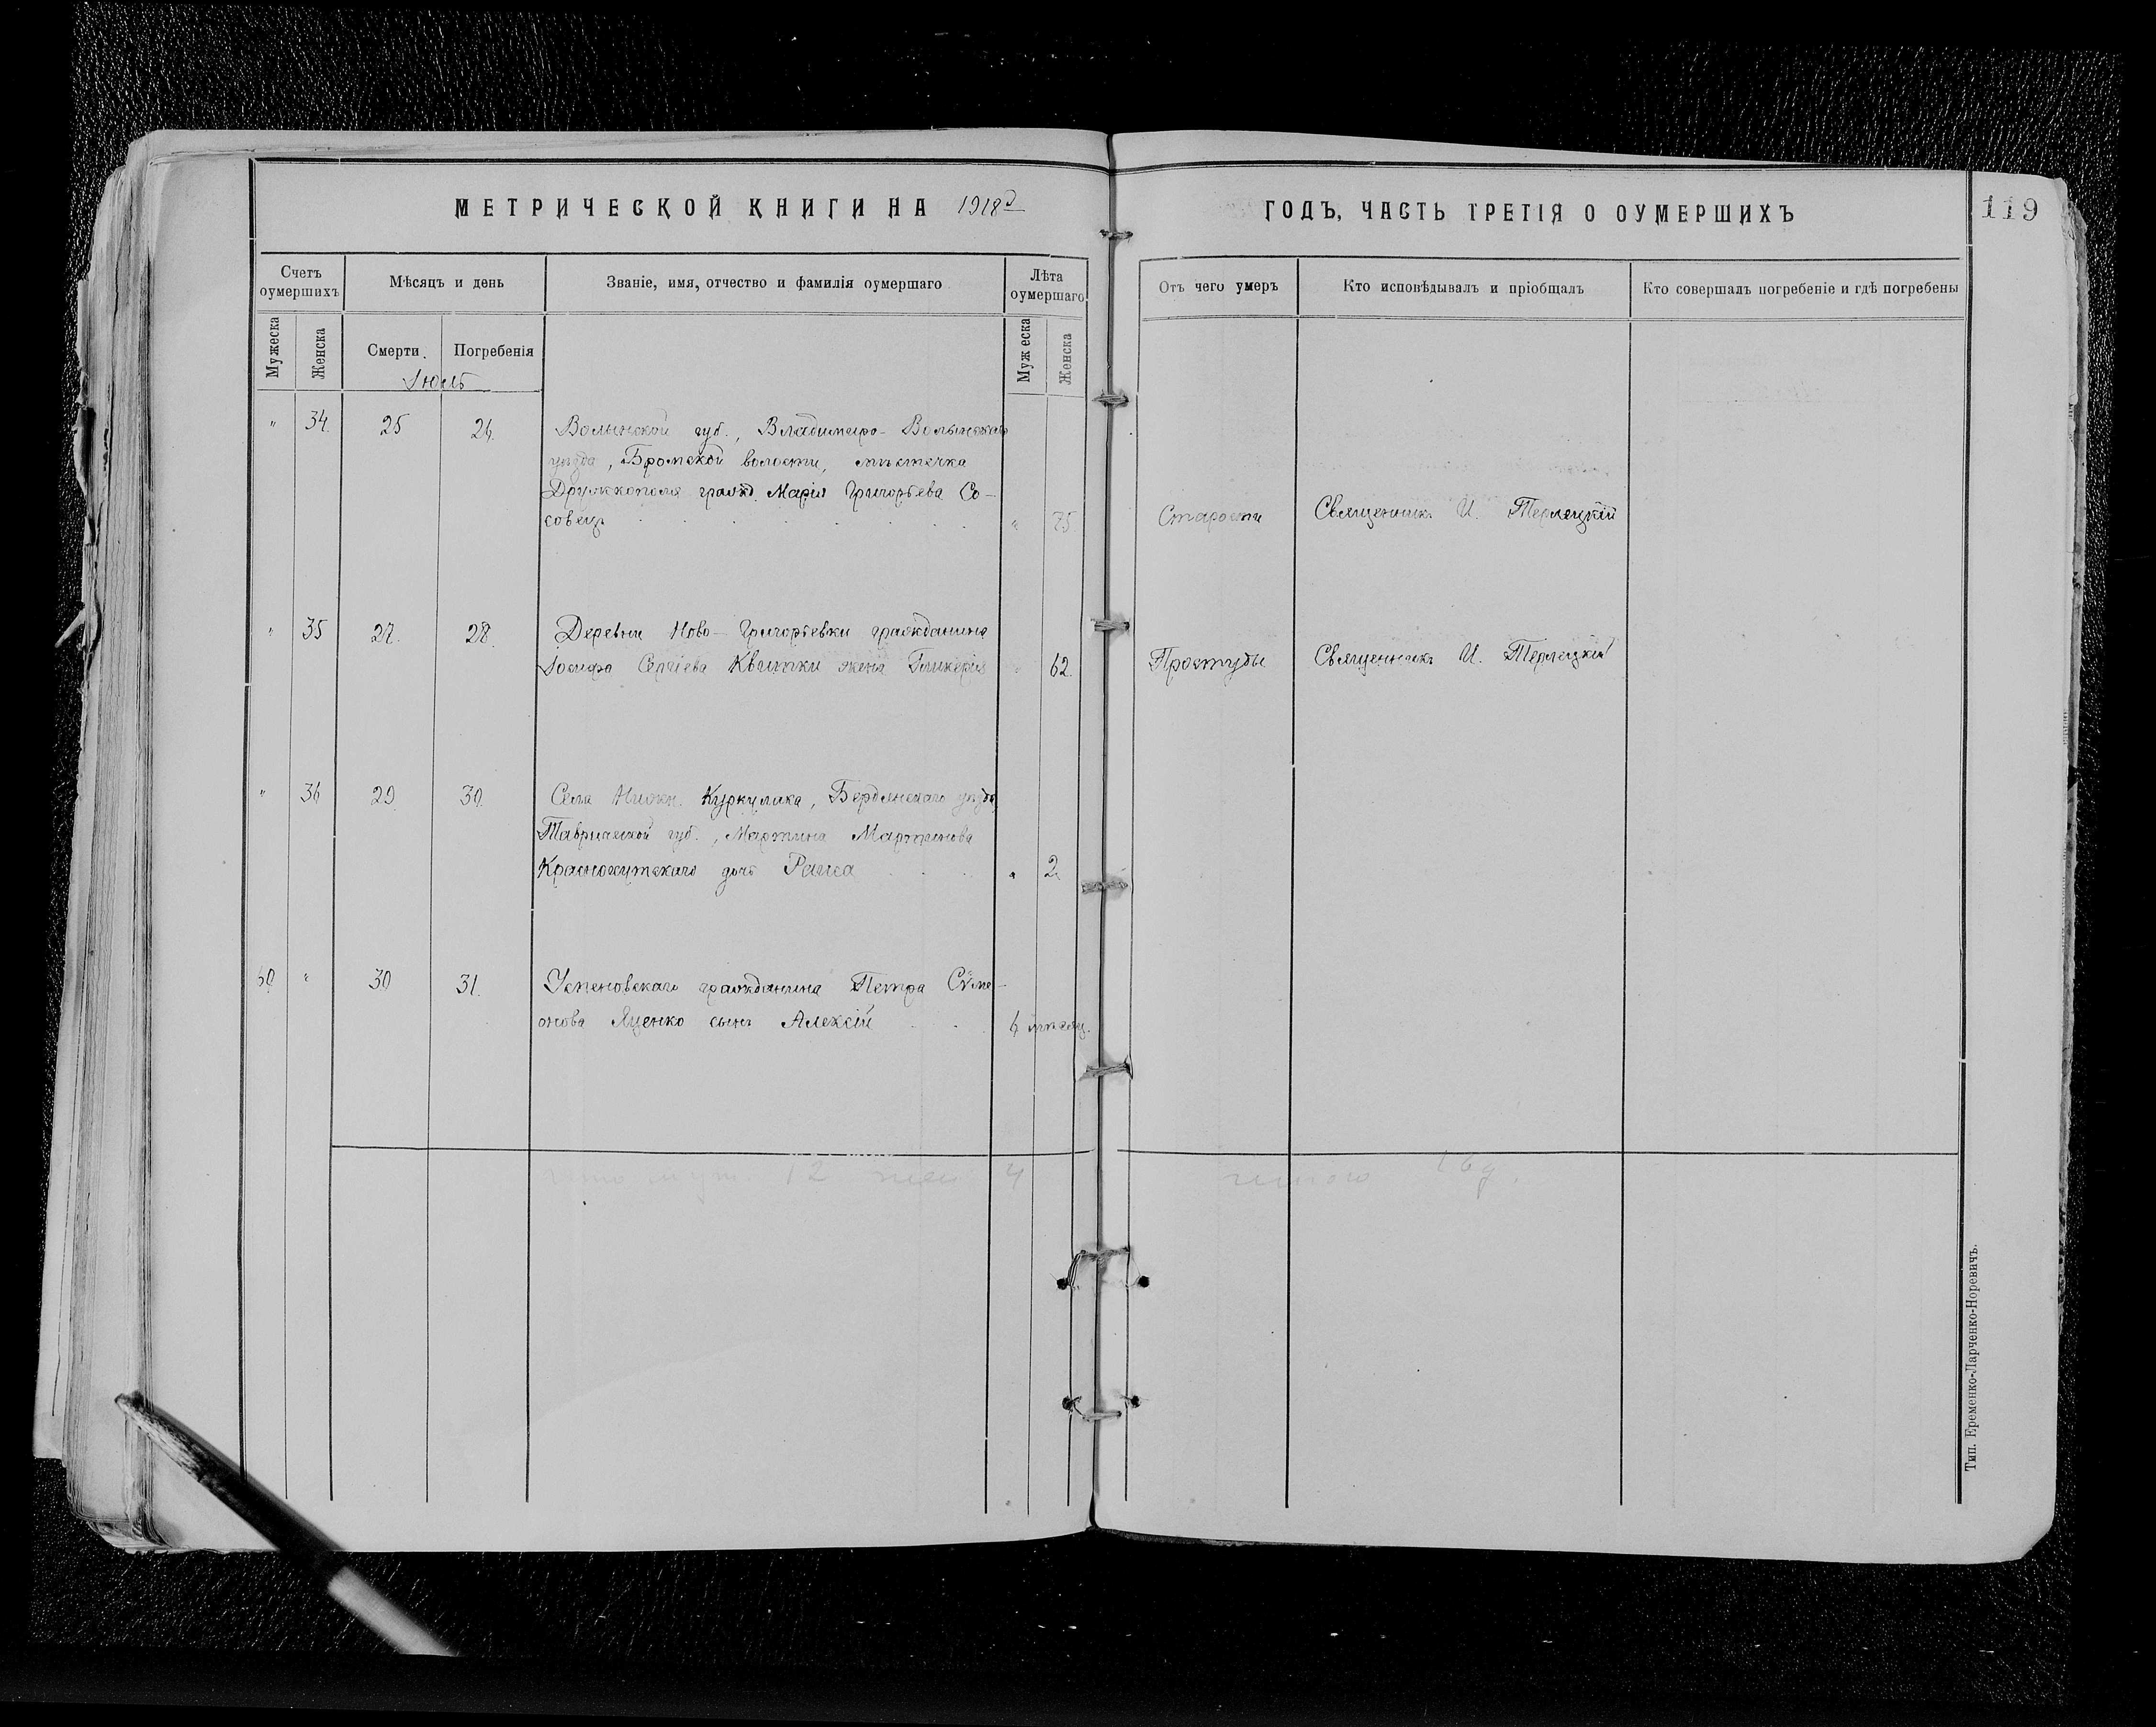 МЕТРИЧЕСКОЙ КНИГИ НА 1918й
ГОДЪ, ЧАСТЬ ТРЕТІЯ О ОУМЕРШИХЪ
119
Счетъ оумершихъ
Мѣсяцъ и день
Званіе, имя, отчество и фамилія оумершаго
Лѣта оумершаго
Отъ чего умеръ
Кто исповѣдывалъ и пріобщалъ
Кто совершалъ погребеніе и гдѣ погребены
Мужеска
Женска
Смерти.
Погребенія
Мужеска
Женска
Іюль
" 34. 25 26. Волынской губ., Владимиро-Волынскаго
уѣзда, волости, мѣстечка
Дружкополя гражд. Марія Григорьева Со-
совецъ . . . . . . . " 75. Старости Священникъ И. Терлецкій
" 35 27. 28. Деревни Ново-Григорьевки гражданина
Іосифа Сергіева Квитки жена Гликерія " 62. Простуды Священникъ И. Терлецкій
" 36 29 30. Села Нижн. Куркулика, Бердянскаго уѣзда,
Таврической губ., Мартина Мартинова
Краснокутскаго дочь Раиса . . . " 2
" 30 31. Успеновскаго гражданина Петра Сѵме-
онова Яценко сынъ Алексій . . мѣсяц.
12 жен 4
итого 16
Тип. Еременко-Ларченко-Норевичъ.